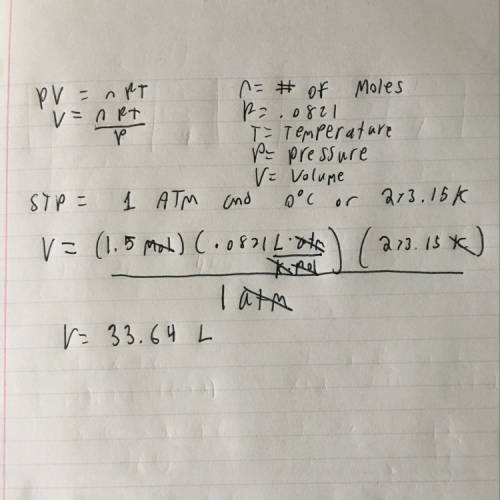 PV = nRT
V = nRT / P
n = # of Moles
R = .0821
T = Temperature
P = pressure
V = Volume
STP = 1 ATM and 0°C or 273.15K
V = (1.5 mol) (.0821 L·atm / K·mol) (273.15 K) / 1 atm
V = 33.64 L